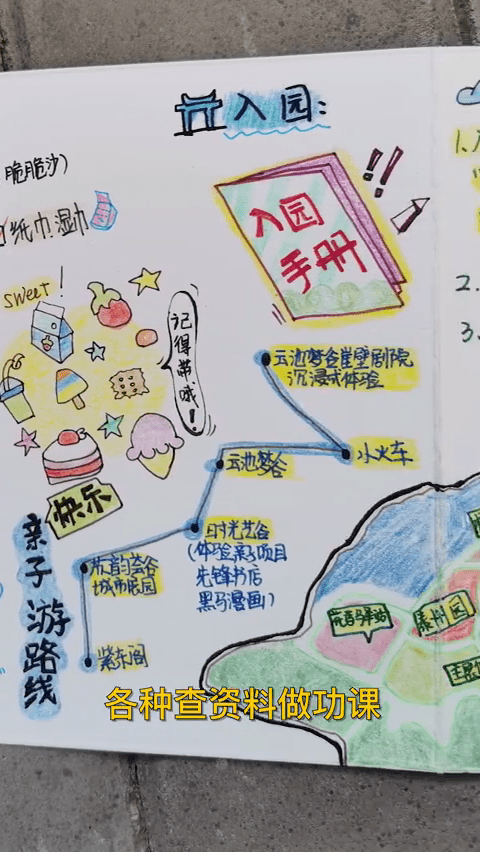 入园:
脆脆沙)
纸巾.湿巾
入园
手册
!!
sweet!
记得带哦!
云池梦谷崖壁剧院
沉浸式体验
小火车
云池梦谷
快乐
时光艺谷
(体验亲子项目
先锋书店
黑马漫画)
城市展园
紫东阁
亲子游路线
1.
2.
3.
秦州园
各种查资料做功课